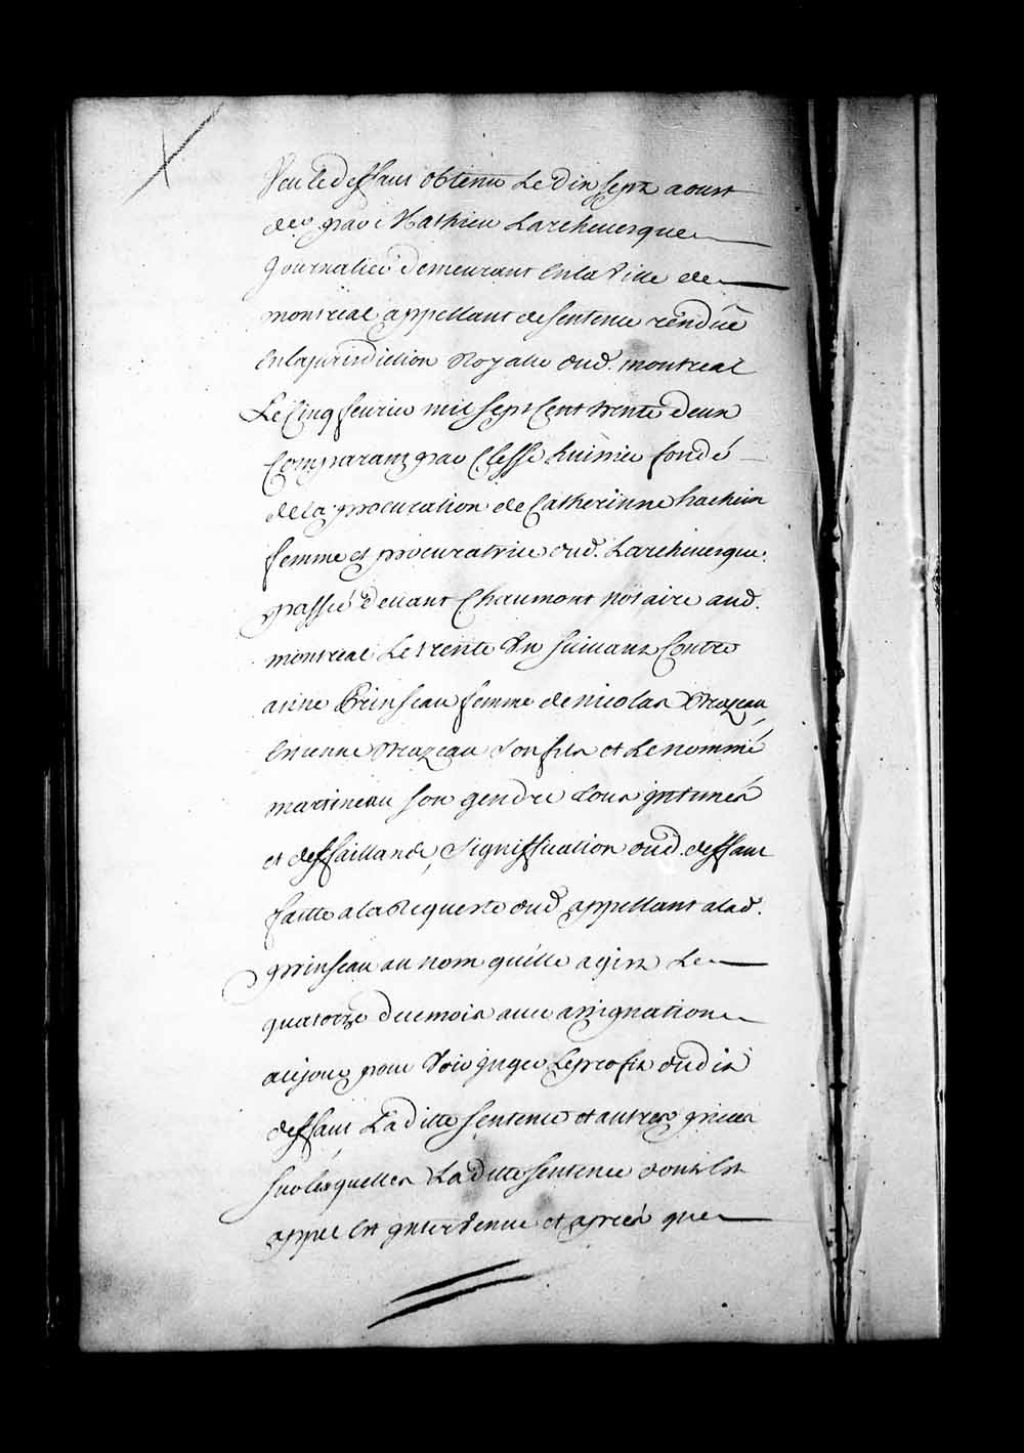 Veu le deffaut obtenu Le dix sept aoust
par Mathieu Larchevesque
Journalier demeurant en la Ville de
montreal appellant de sentence rendüe
en la jurisdiction Royalle dud. montreal
Le Cinq fevrier mil sept Cent trente deux
Comparant par Clesse huissier fondé
de la procuration de Catherinne
femme et procuratrice dud. Larchevesque
passée devant Chaumont notaire aud.
montreal Le trente Un suivant Contre
anne Prinseau femme de nicolas Brazeau,
Estienne Brazeau son fils et Le nommé
martineau son gendre tous intimés
et deffaillands, Signiffication dud. deffaut
faitte a la Requeste dud appellant a lad.
prinseau au nom quelle agist Le
quatorze du mois avec assignation
a ce jour pour Voir juger Le profit dudit
deffaut Laditte sentence et autres pieces
sur lesquelles Laditte sentence dont Est
appel Est intervenue et apres que